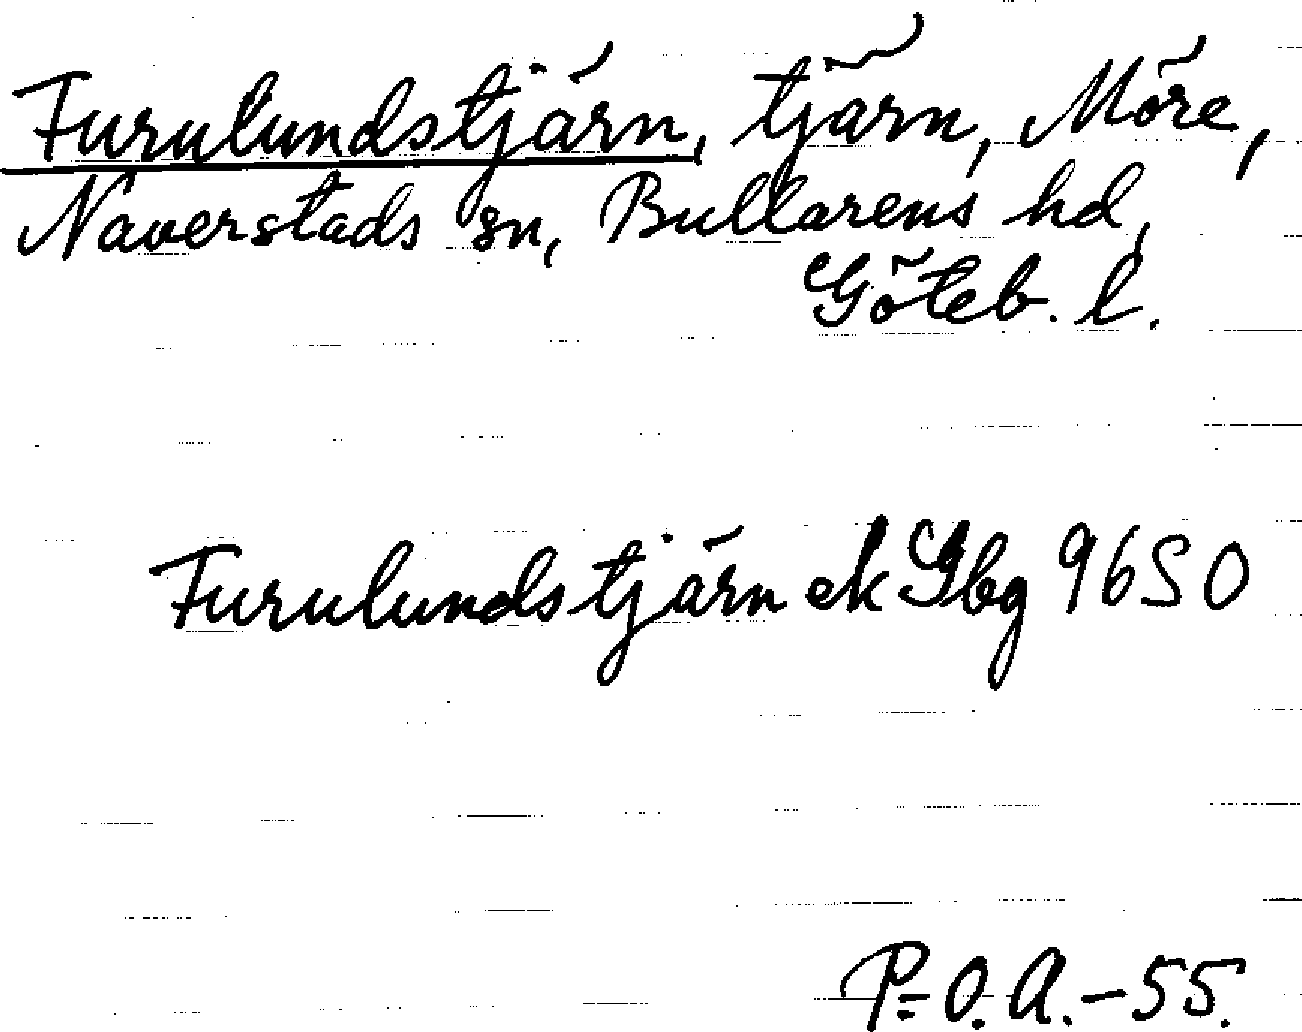 Furulundstjärn, tjärn, Möre,
Naverstads sn, Bullarens hd,
Göteb. l.
Furulundstjärn ek Gbg 96SO
P.O.A.-55.